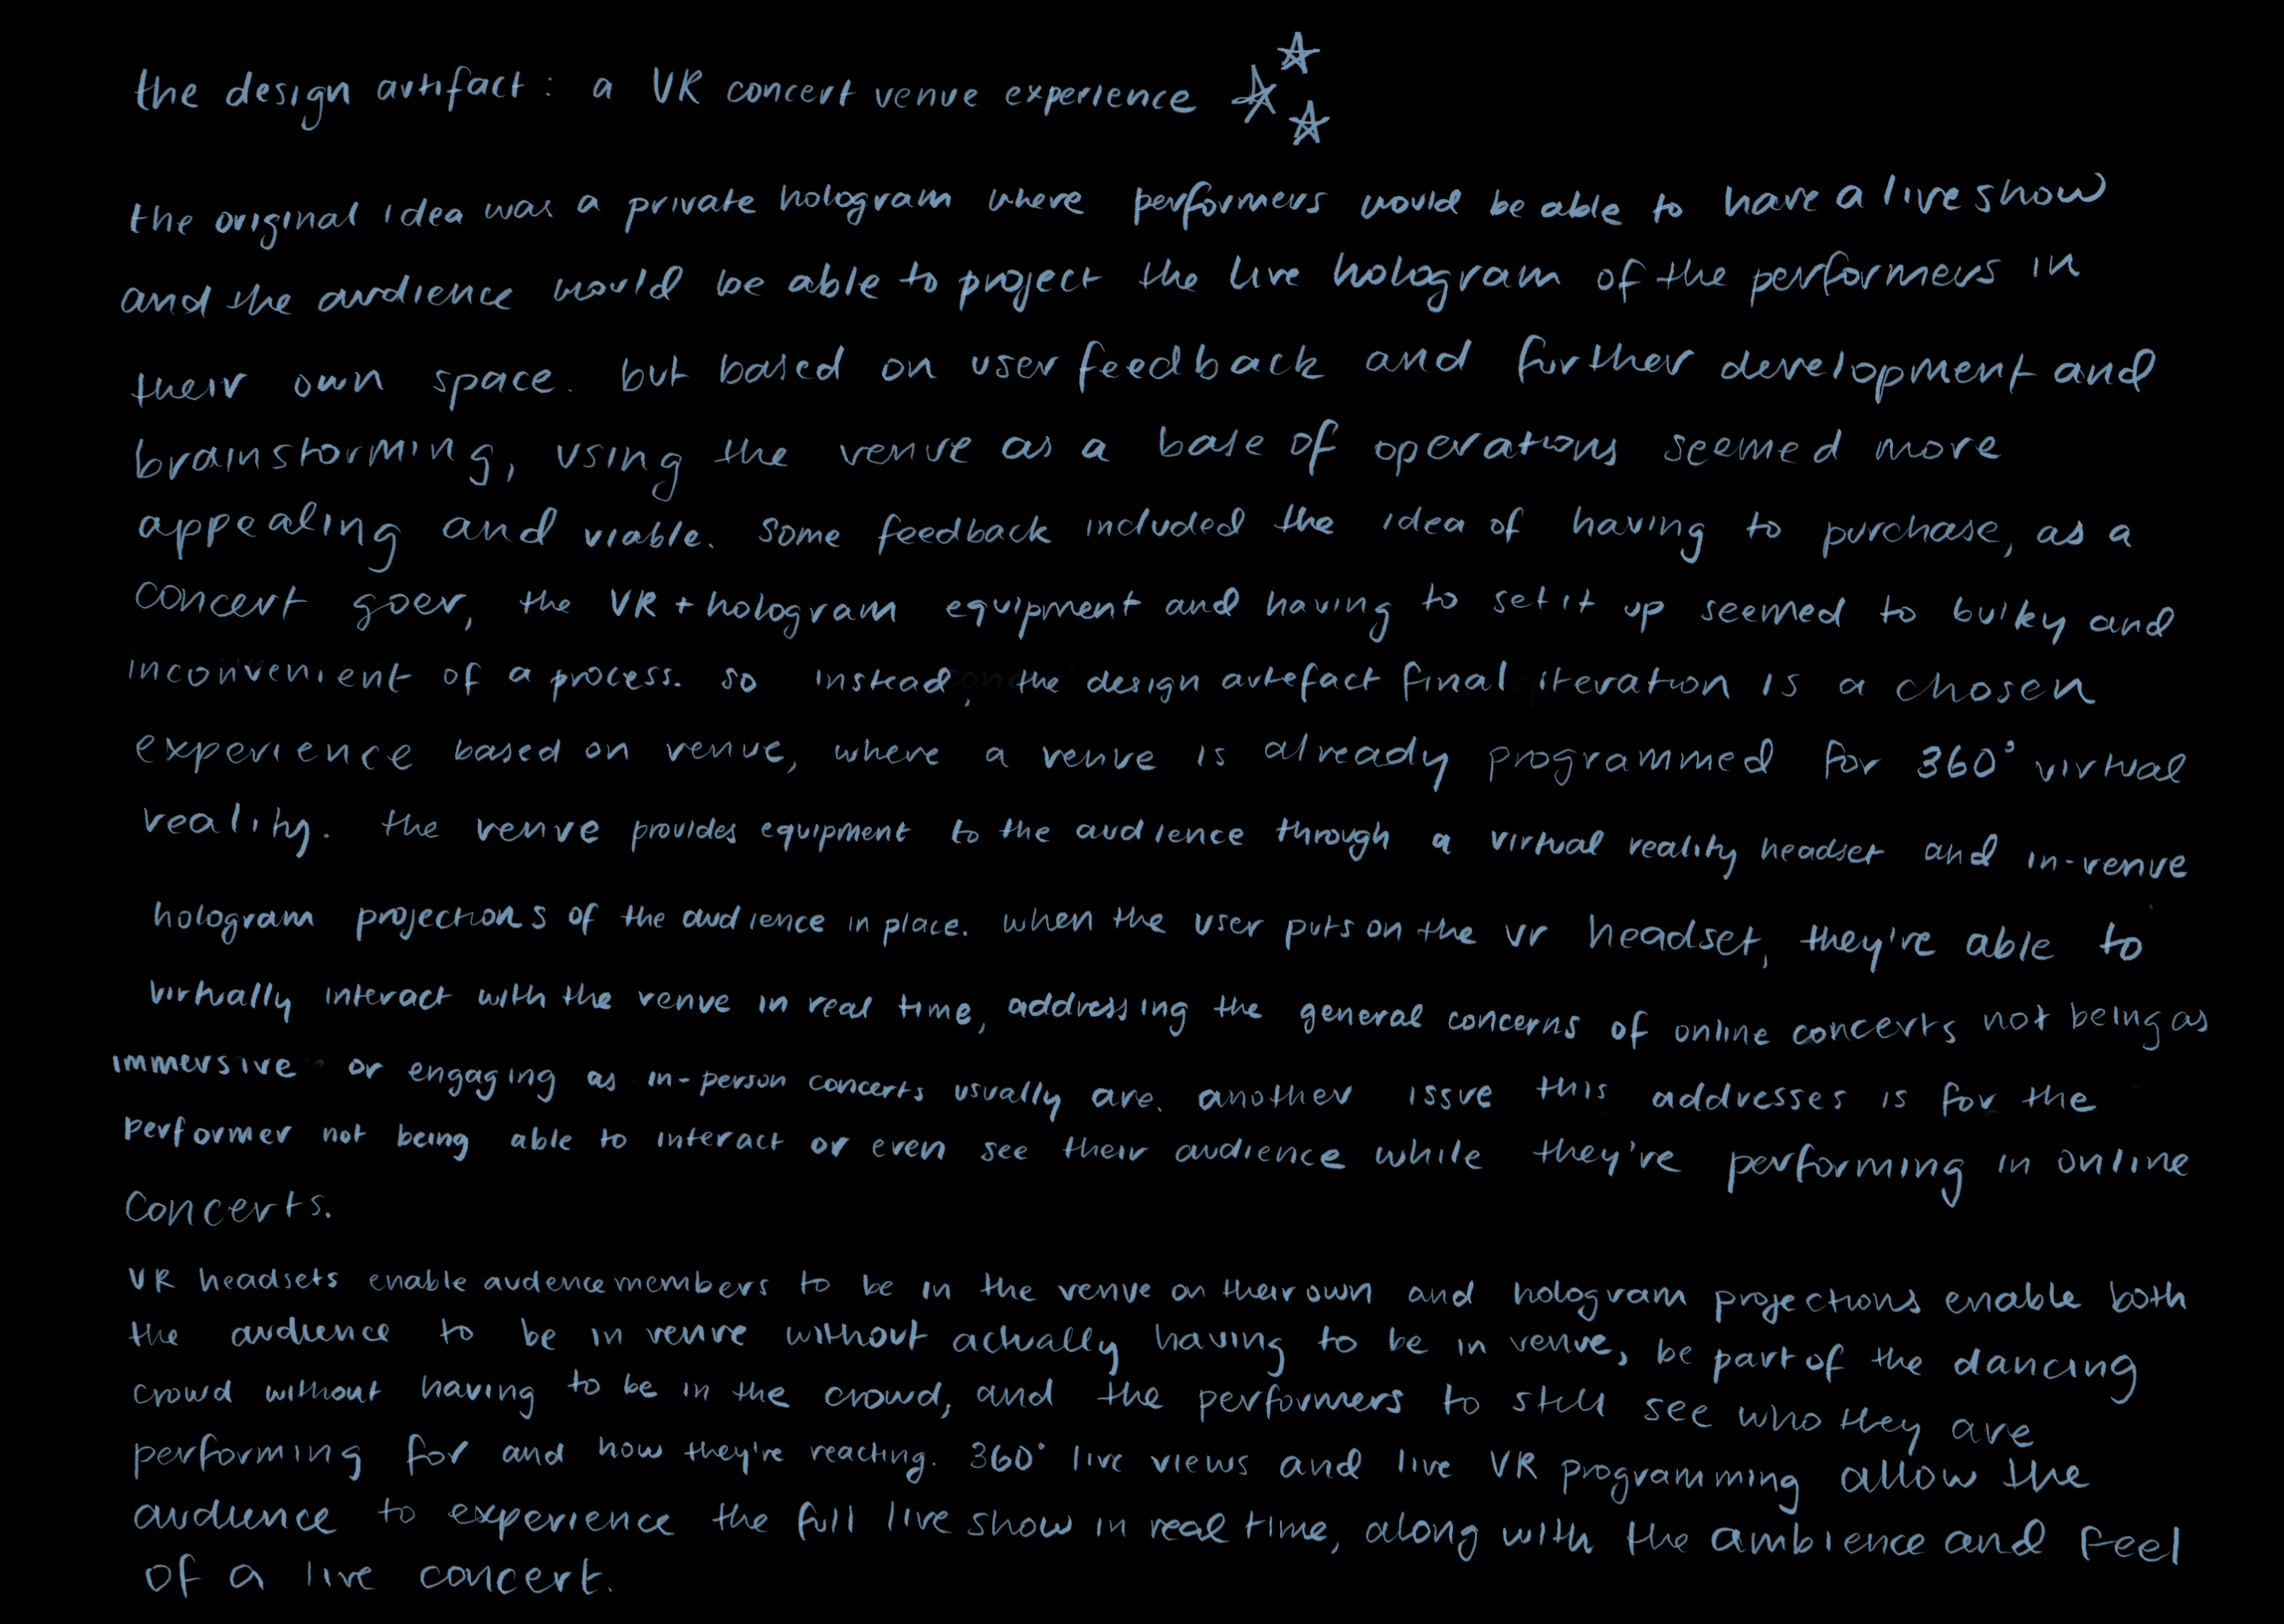 the design artifact: a VR concert venue experience
the original idea was a private hologram where performers would be able to have a live show
and the audience would be able to project the live hologram of the performers in
their own space. but based on user feedback and further development and
brainstorming, using the venue as a base of operations seemed more
appealing and viable. some feedback included the idea of having to purchase, as a
concert goer, the VR + hologram equipment and having to set it up seemed to bulky and
inconvenient of a process. so instead, the design artefact final iteration is a chosen
experience based on venue, where a venue is already programmed for 360° virtual
reality. the venue provides equipment to the audience through a virtual reality headset and in-venue
hologram projections of the audience in place. when the user puts on the vr headset, they're able to
virtually interact with the venue in real time, addressing the general concerns of online concerts not being as
immersive or engaging as in-person concerts usually are. another issue this addresses is for the
performer not being able to interact or even see their audience while they're performing in online
concerts.
VR headsets enable audence members to be in the venue on their own and hologram projections enable both
the audience to be in venue without actually having to be in venue, be part of the dancing
crowd without having to be in the crowd, and the performers to still see who they are
performing for and how they're reacting. 360° live views and live VR programming allow the
audience to experience the full live show in real time, along with the ambience and feel
of a live concert.